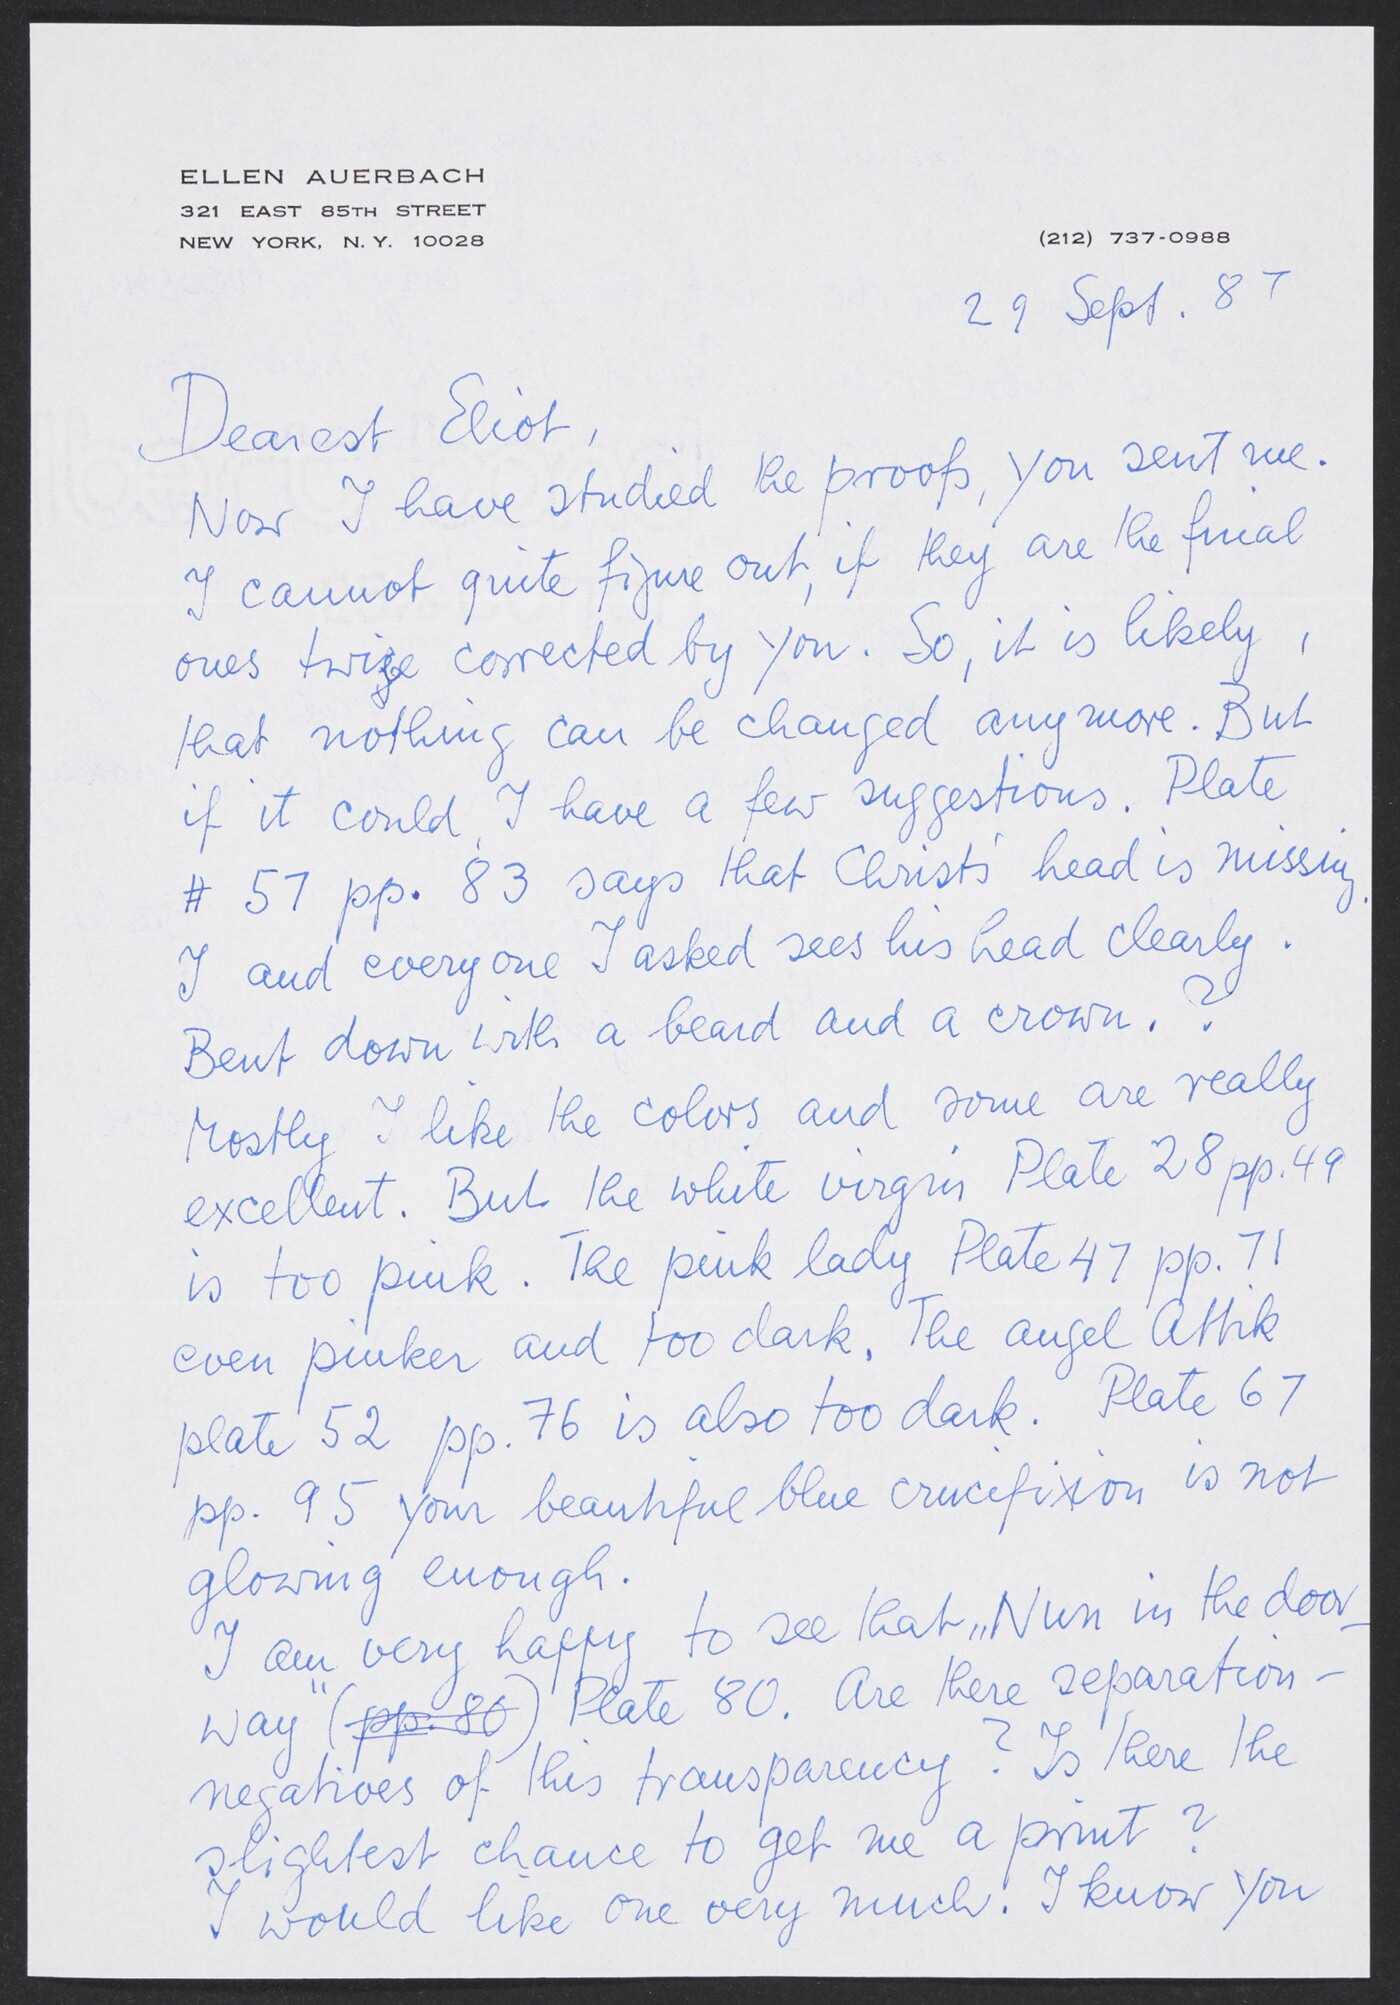 ELLEN AUERBACH
321 EAST 85TH STREET
NEW YORK, N.Y. 10028
(212) 737-0988
29 Sept. 87
Dearest Eliot,
Now I have studied the proofs, you sent me.
I cannot quite figure out, if they are the final
ones twice corrected by you. So, it is likely,
that nothing can be changed anymore. But
if it could, I have a few suggestions. Plate
# 57 pp. 83 says that Christs' head is missing.
I and everyone I asked sees his head clearly.
Bent down with a beard and a crown. ?
Mostly I like the colors and some are really
excellent. But the white virgin Plate 28 pp. 49
is too pink. The pink lady Plate 47 pp. 71
even pinker and too dark. The angel Attik
plate 52 pp. 76 is also too dark. Plate 67
pp. 95 your beautiful blue crucifixion is not
glowing enough.
I am very happy to see that „Nun in the door-
way" (pp. 80) Plate 80. Are there separation-
negatives of this transparency? Is there the
slightest chance to get me a print?
I would like one very much. I know you